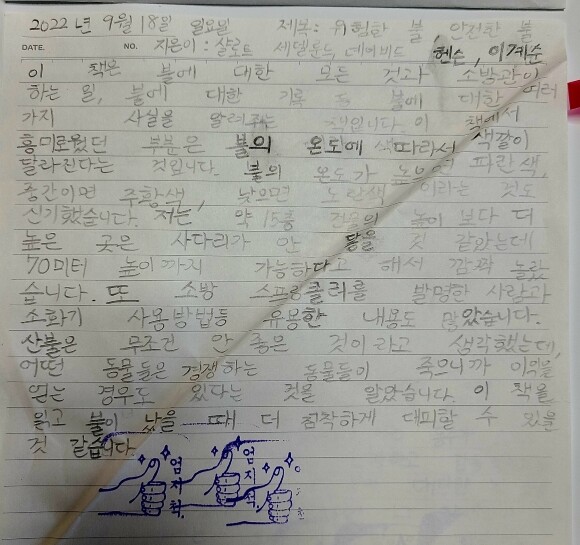 2022년 9월 18일 일요일 제목: 위험한 불, 안전한 불
DATE. NO. 지은이: 샬로트 세델룬드 데이비드 헨슨, 이계순
이 책은 불에 대한 모든 것과 소방관이
하는 일, 불에 대한 기록 등 불에 대한 여러
가지 사실을 알려주는 책입니다. 이 책에서
흥미로웠던 부분은 불의 온도에 따라서 색깔이
달라진다는 것입니다. 불의 온도가 높으면 파란색,
중간이면 주황색, 낮으면 노란색이라는 것도
신기했습니다. 저는 약 15층 건물의 높이 보다 더
높은 곳은 사다리가 안 닿을 것 같았는데
70미터 높이까지 가능하다고 해서 깜짝 놀랐
습니다. 또 소방 스프링클러를 발명한 사람과
소화기 사용방법등 유용한 내용도 많았습니다.
산불은 무조건 안 좋은 것이라고 생각했는데,
어떤 동물들은 경쟁하는 동물들이 죽으니까 이익을
얻는 경우도 있다는 것을 알았습니다. 이 책을
읽고 불이 났을 때 더 침착하게 대피할 수 있을
것 같습니다.
엄지척 엄지척